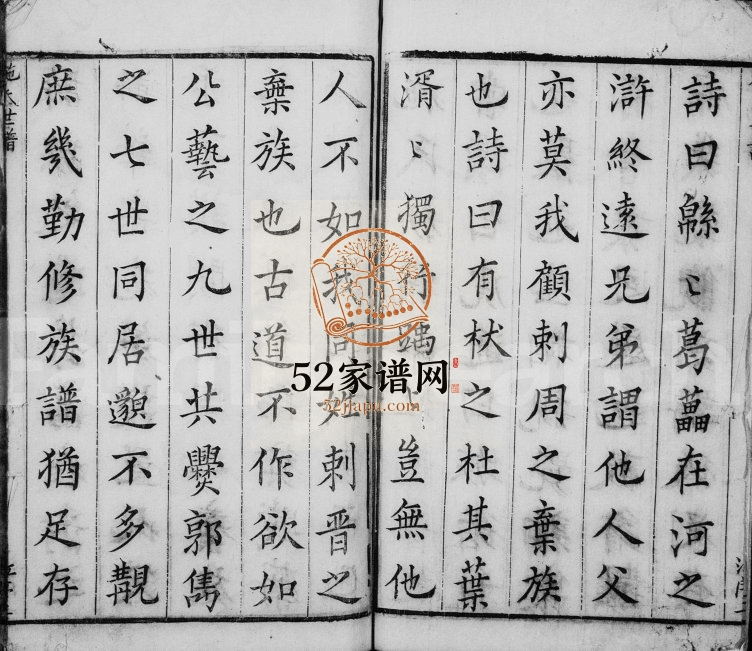 詩曰緜〻葛藟在河之
滸終遠兄弟謂他人父
亦莫我顧刺周之棄族
也詩曰有杕之杜其葉
湑〻獨行踽〻豈無他
人不如我同姓刺晉之
棄族也古道不作欲如
公藝之九世共爨郭雋
之七世同居邈不多覯
庶幾勤修族譜猶足存
施氏世譜
52家谱网
52jiapu.com